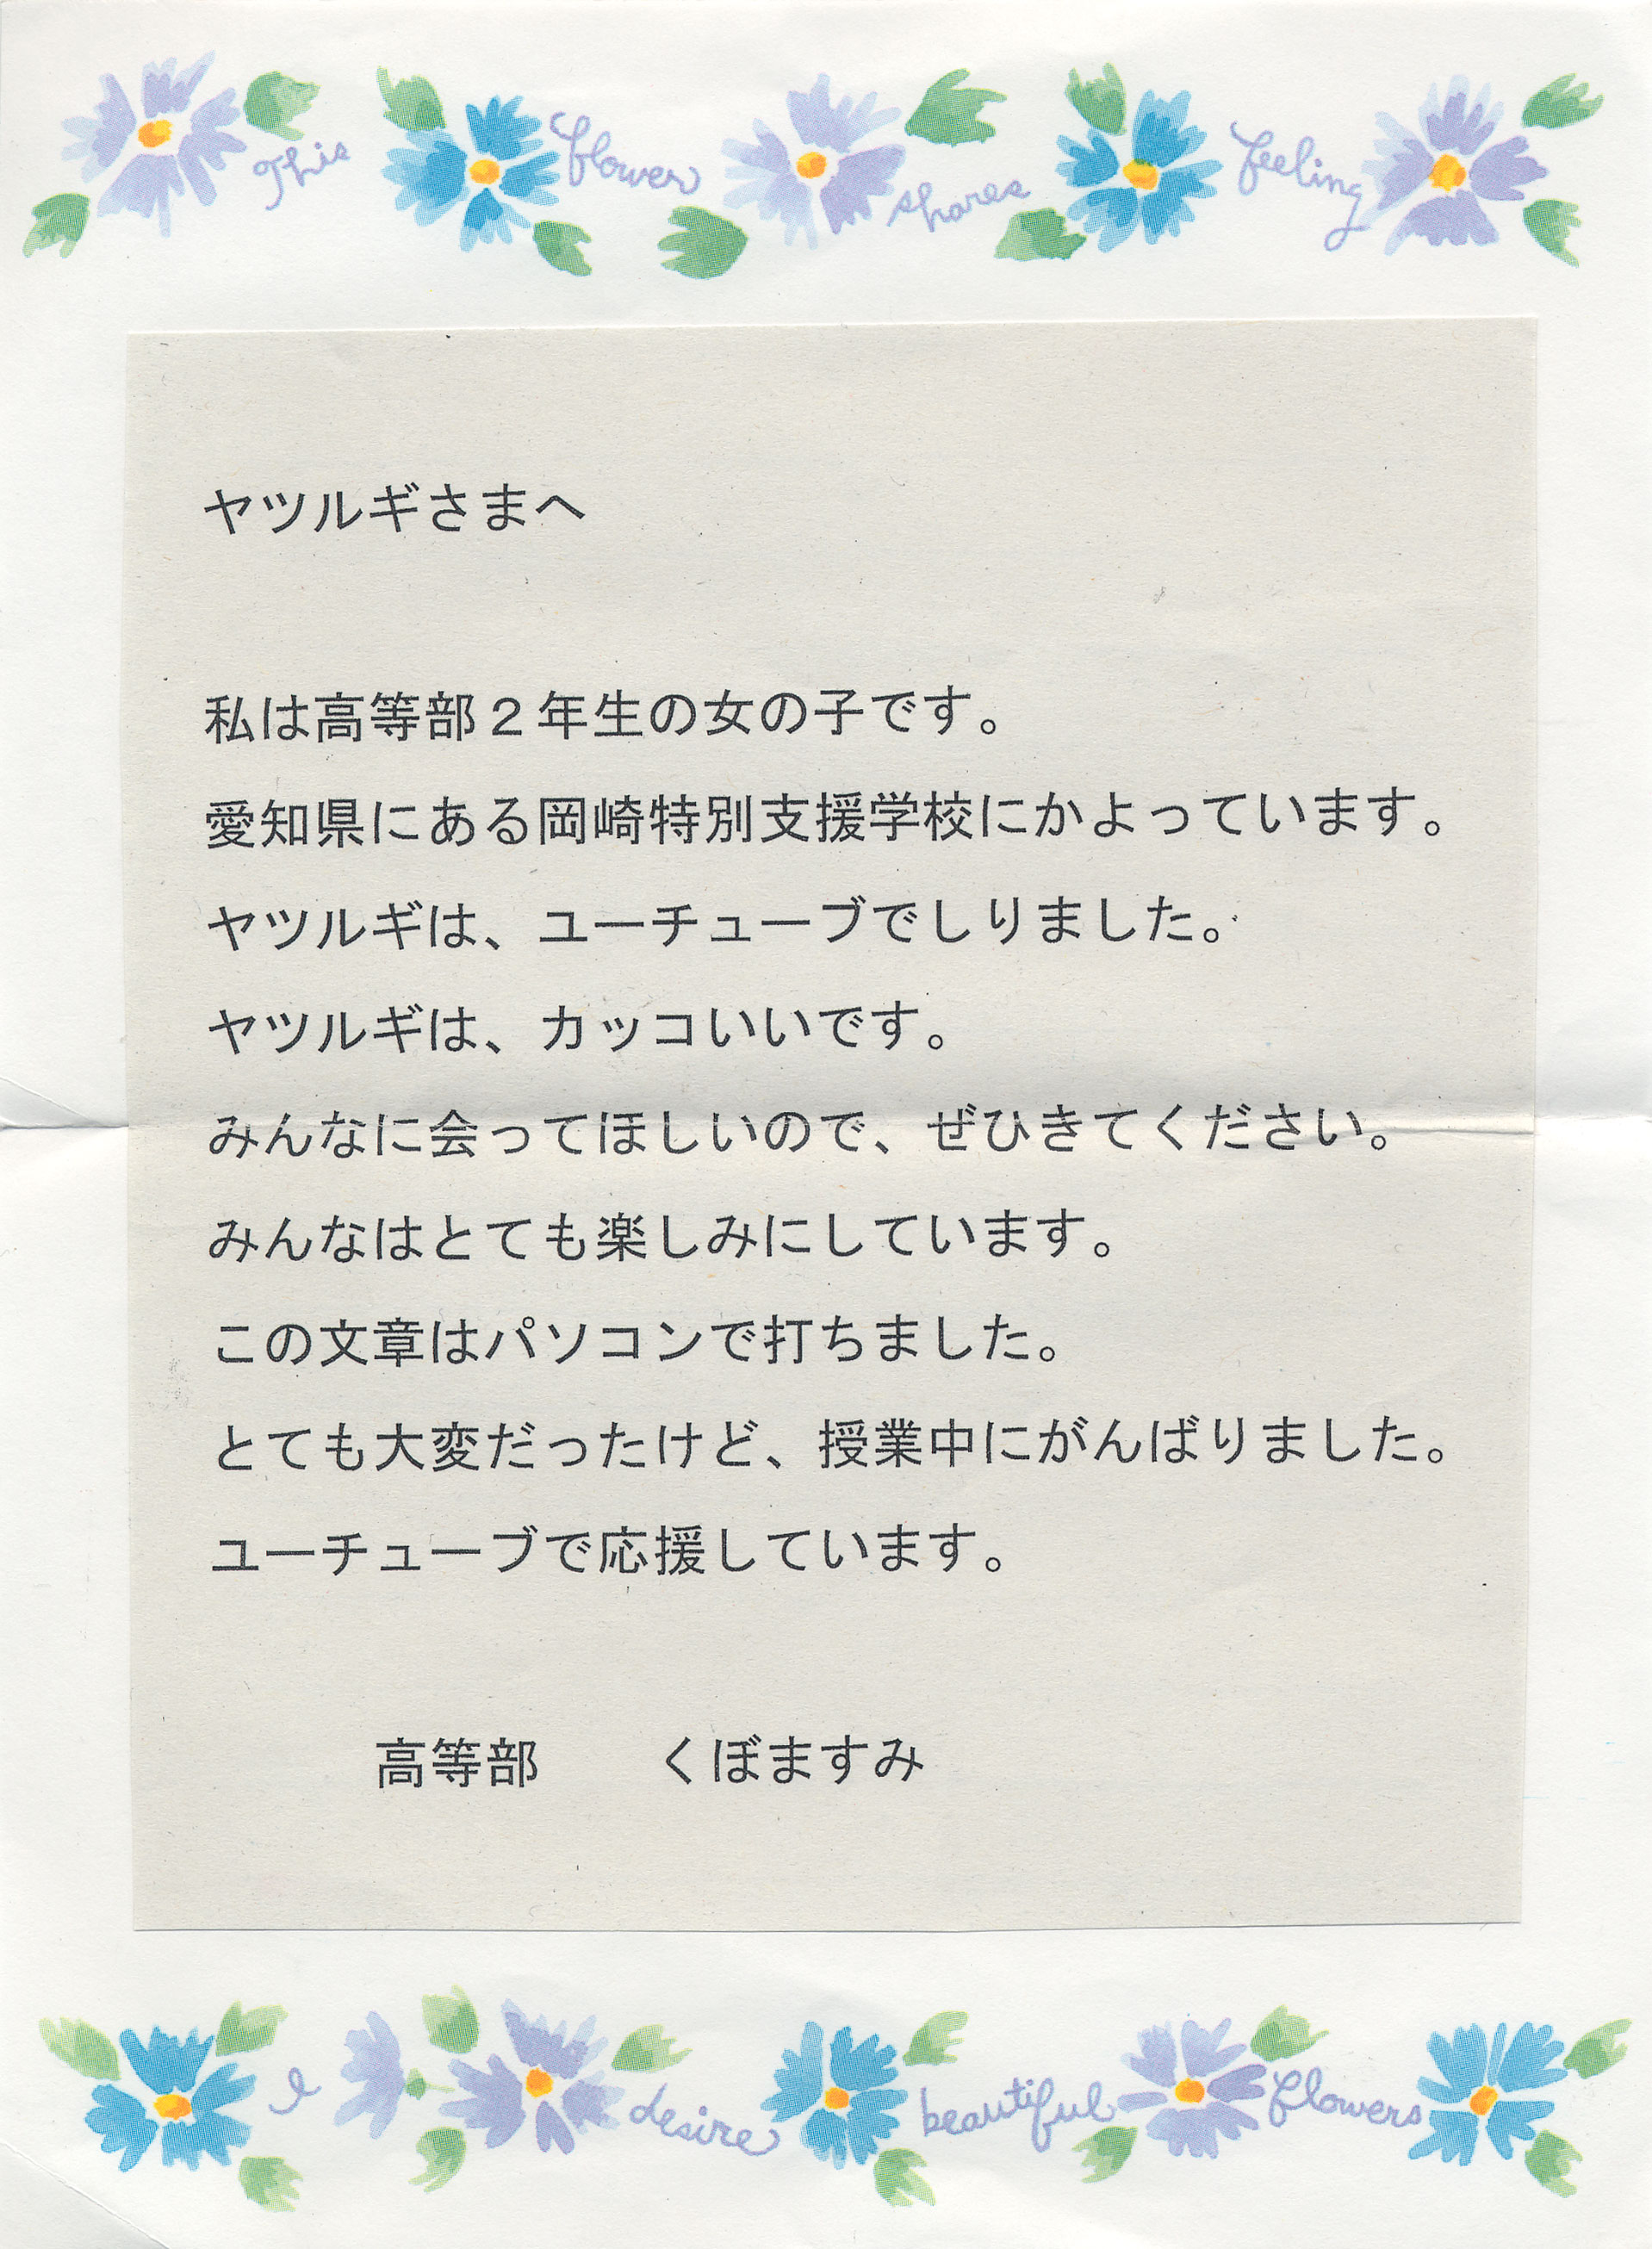 This flower shares feeling
ヤツルギさまへ
私は高等部２年生の女の子です。
愛知県にある岡崎特別支援学校にかよっています。
ヤツルギは、ユーチューブでしりました。
ヤツルギは、カッコいいです。
みんなに会ってほしいので、ぜひきてください。
みんなはとても楽しみにしています。
この文章はパソコンで打ちました。
とても大変だったけど、授業中にがんばりました。
ユーチューブで応援しています。
高等部　　くぼますみ
I desire beautiful flowers